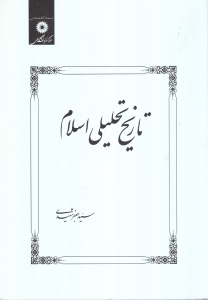 تاریخ تحلیلی اسلام
سید جعفر شهیدی